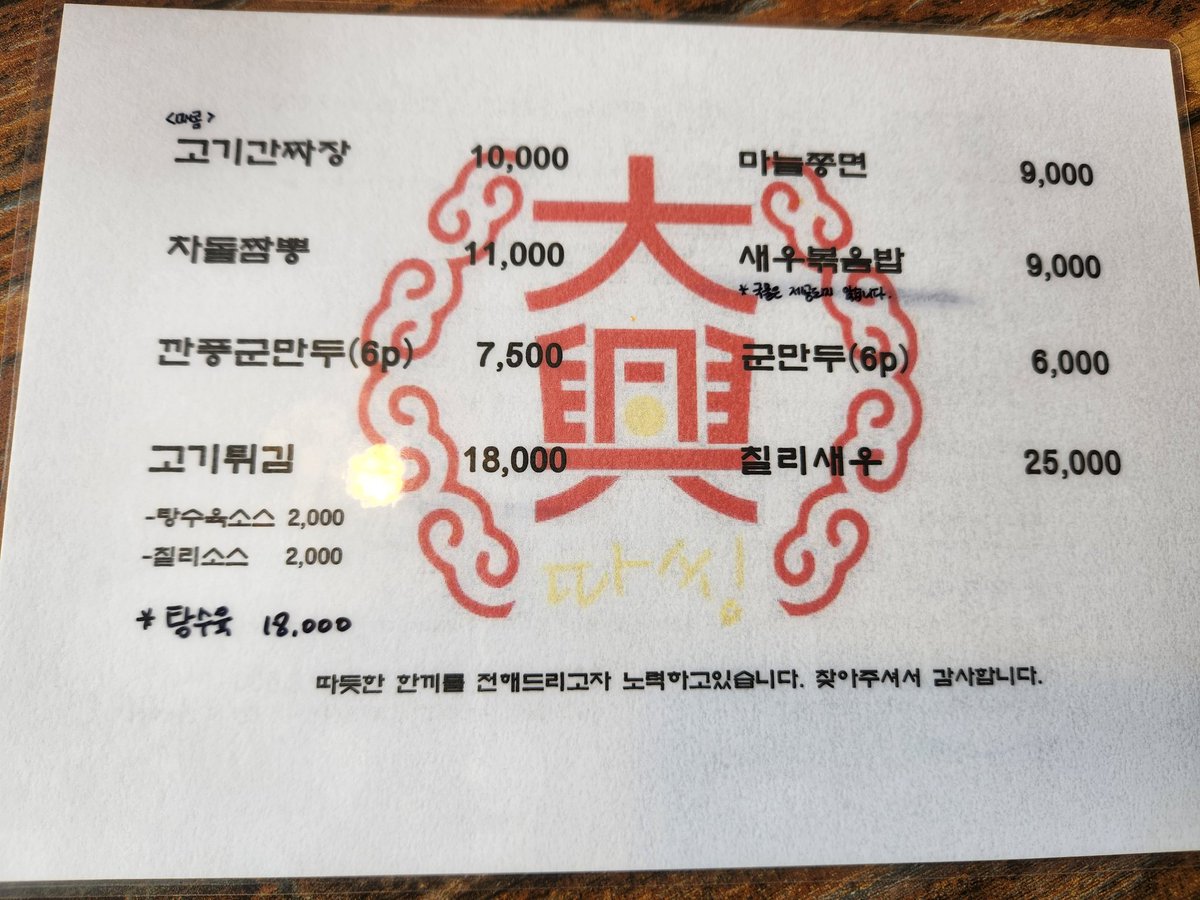 <매콤>
고기간짜장 10,000
차돌짬뽕 11,000
깐풍군만두(6p) 7,500
고기튀김 18,000
-탕수육소스 2,000
-칠리소스 2,000
* 탕수육 18,000
마늘쫑면 9,000
새우볶음밥 9,000
* 국물은 제공되지 않습니다.
군만두(6p) 6,000
칠리새우 25,000
大興
따씽
따듯한 한끼를 전해드리고자 노력하고있습니다. 찾아주셔서 감사합니다.